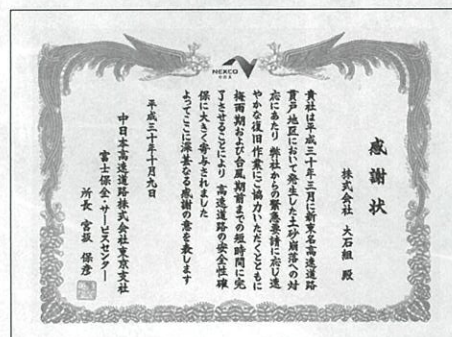 NEXCO
中日本
感謝状
株式会社 大石組 殿
貴社は平成三十年三月に新東名高速道路
貫戸地区において発生した土砂崩落への対
応にあたり 弊社からの緊急要請に応じ速
やかな復旧作業にご協力いただくとともに
梅雨期および台風期前までの短時間に完
了させることにより 高速道路の安全性確
保に大きく寄与されました
よってここに深甚なる感謝の意を表します
平成三十年十月九日
中日本高速道路株式会社東京支社
富士保全・サービスセンター
所長 宮坂 保彦